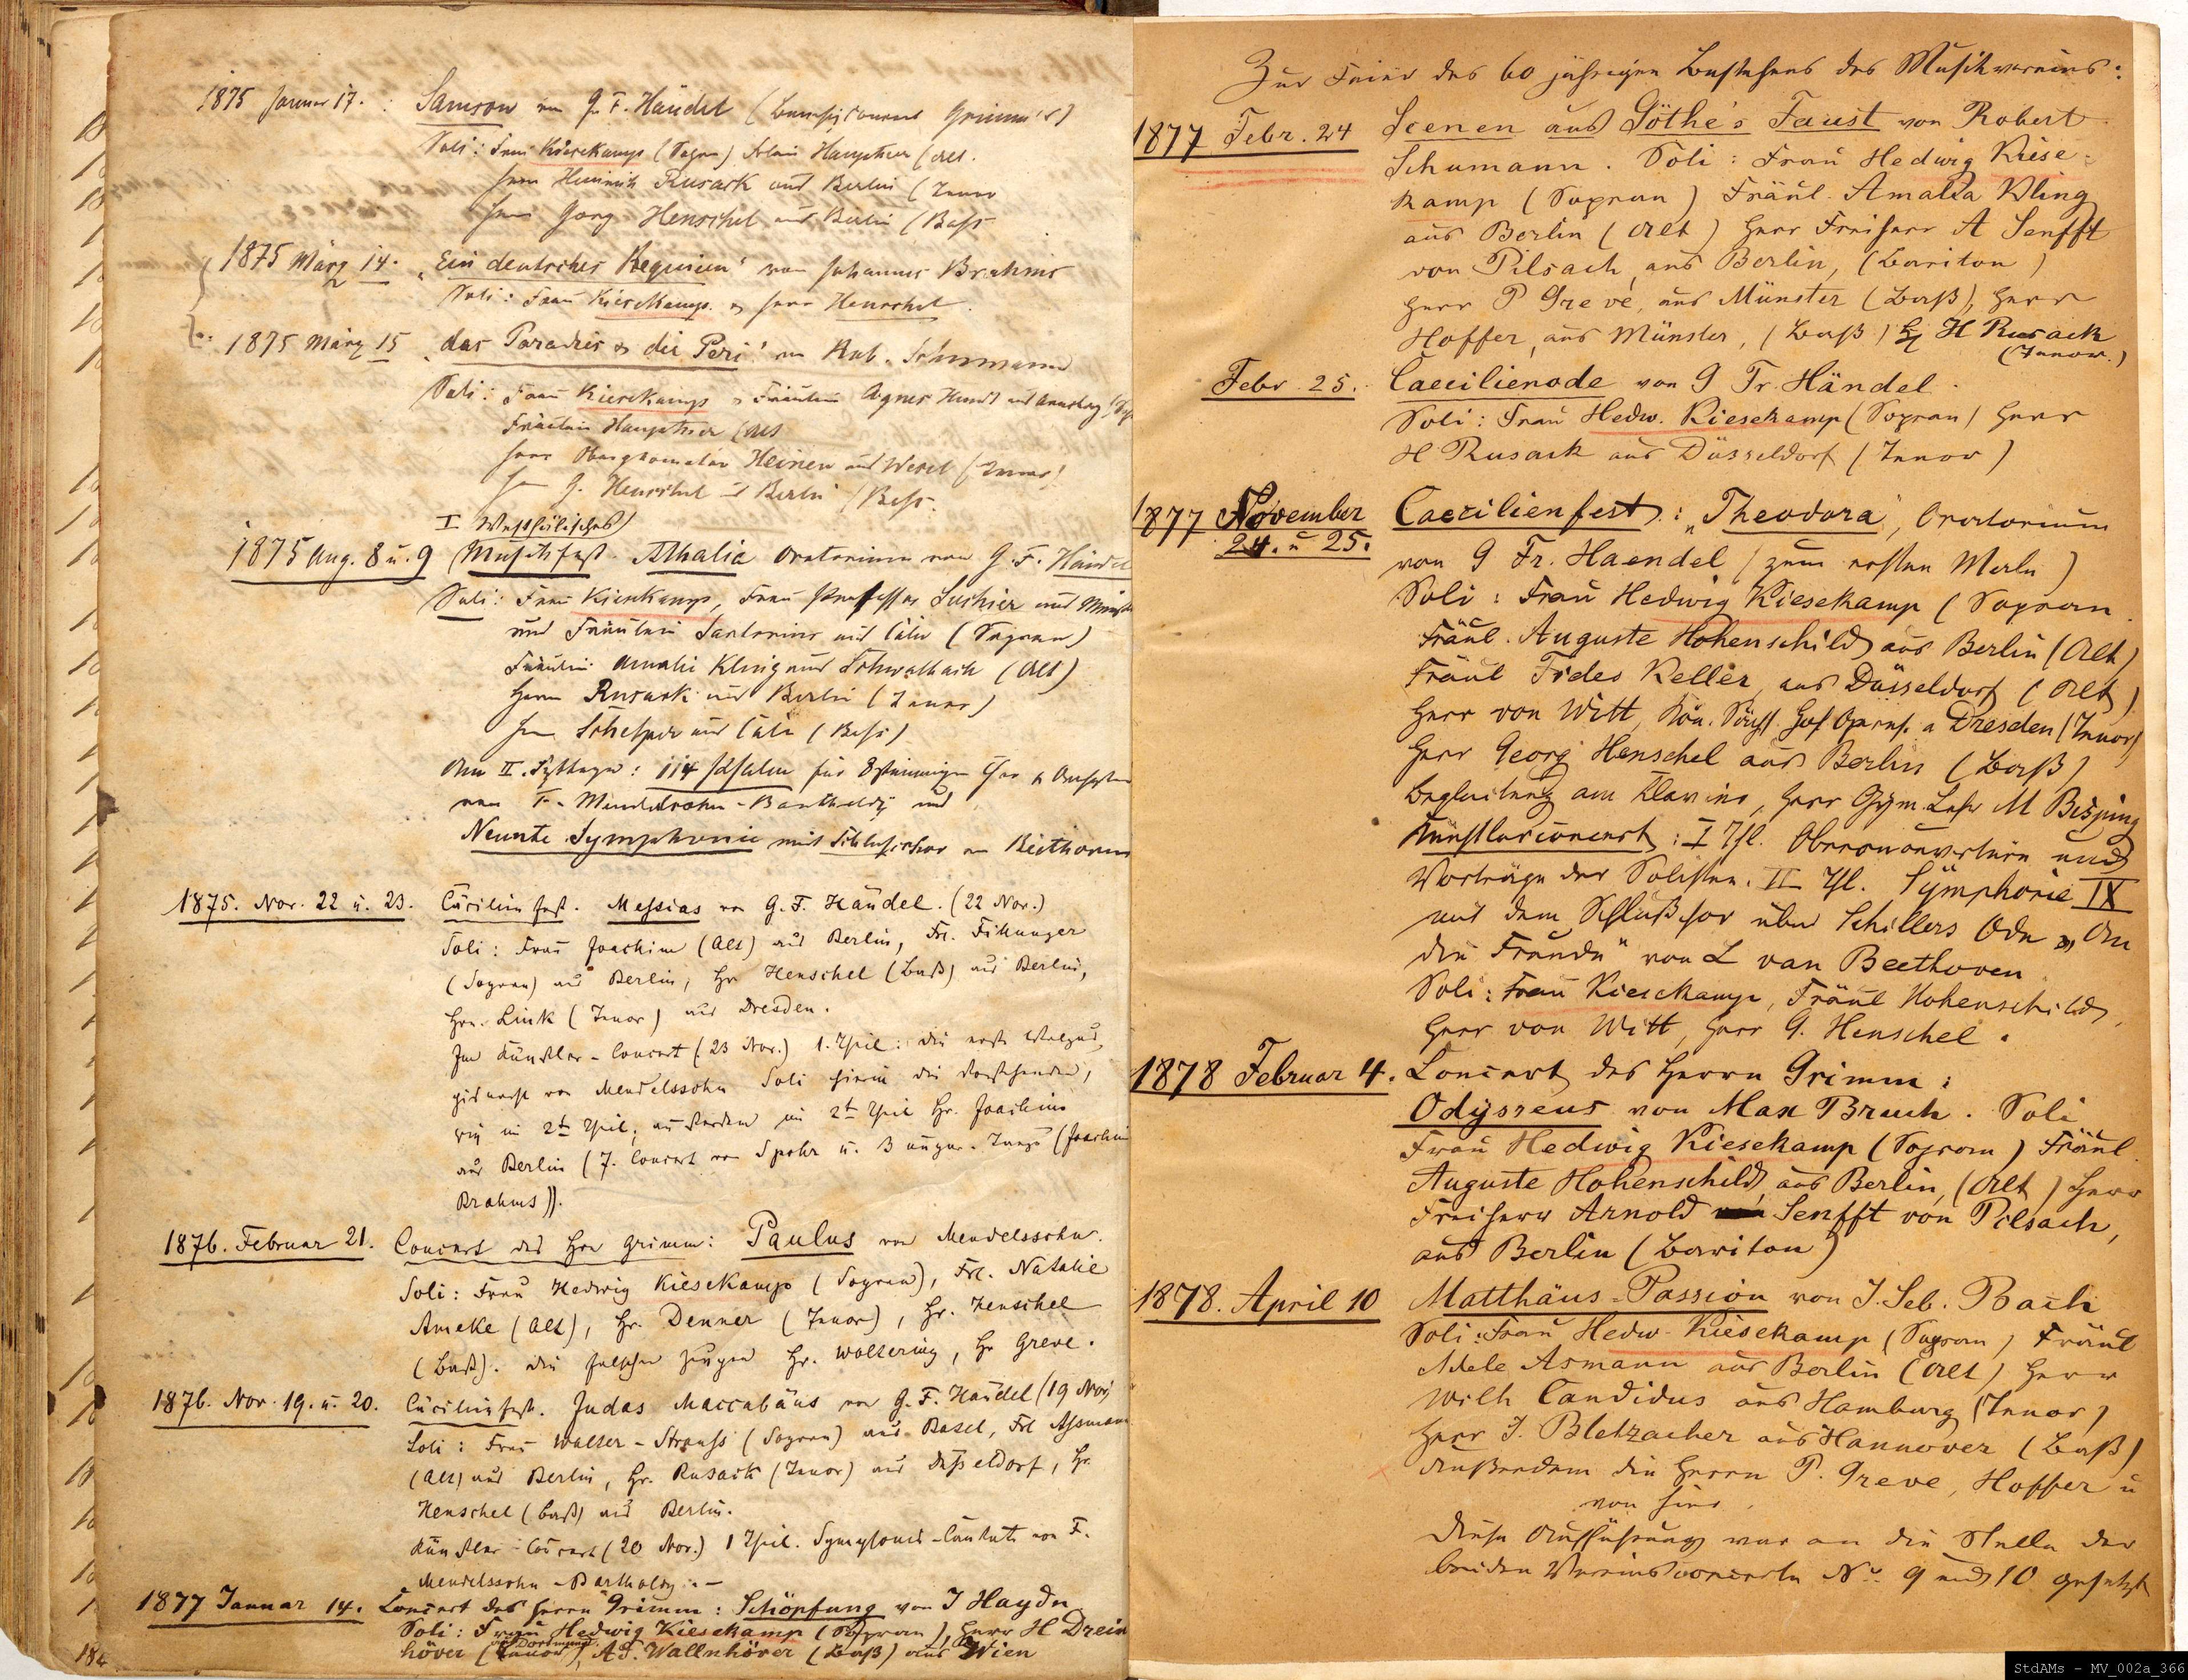 1875 Januar 17. : Samson von G. F. Händel (Benefizconcert Grimm's)
Soli: Frau Kiesekamp (Sopran) Frln Hauptner (Alt.
Herr Heinrich Rusack aus Berlin (Tenor
Herr Georg Henschel aus Berlin (Bass
1875 März 14. „Ein deutsches Requiem" von Johannes Brahms
Soli: Frau Kiesekamp & Herr Henschel.
1875 März 15 „das Paradies & die Peri" von Rob. Schumann
Soli: Frau Kiesekamp & Fräulein Agnes
Fräulein Hauptner (Alt
Herr Heinen aus Wesel (Tenor)
Herr G. Henschel aus Berlin (Bass.
I Westfälisches
1875 Aug. 8 u. 9 Musikfest Athalia Oratorium von G. F. Händel
Soli: Frau Kiesekamp, Frau Professor Luchier aus Münster
und Fräulein Sartorius aus Cöln (Sopran)
Fräulein Amalie Kling aus Schwalbach (Alt)
Herrn Rusack aus Berlin (Tenor)
Herr Schelper aus Cöln (Bass)
Am II. Festtage: 114 Psalm für 8stimmigen Chor & Orchester
von F. Mendelssohn-Bartholdy und
Neunte Symphonie mit Schlusschor von Beethoven
1875. Nov. 22 u. 23. Cäcilienfest. Messias von G. F. Händel. (22 Nov.)
Soli: Frau Joachim (Alt) aus Berlin, Frl. Fillunger
(Sopran) aus Berlin, Hr Henschel (Baß) aus Berlin,
Hrn. Link (Tenor) aus Dresden.
Im Künstler-Concert (23 Nov.) 1. Theil: die erste Walpur-
gisnacht von Mendelssohn Soli hierin die Vorstehenden,
wie im 2ten Theil; außerdem im 2ten Theil Hr. Joachim
aus Berlin (7. Concert von Spohr u. 3 ungar. Tänze (Joachim
Brahms)).
1876. Februar 21. Concert des Hrn Grimm: Paulus von Mendelssohn.
Soli: Frau Hedwig Kiesekamp (Sopran), Frl. Natalie
Ameke (Alt), Hr. Denner (Tenor), Hr. Henschel
(Baß). die falschen Zeugen Hr. Woltering, Hr Greve.
1876. Nov. 19. u. 20. Cäcilienfest. Judas Maccabäus von G. F. Händel (19 Nov)
Soli: Frau Walter-Strauss (Sopran) aus Basel, Frl Assmann
(Alt) aus Berlin, Hr. Rusack (Tenor) aus Düsseldorf, Hr.
Henschel (Baß) aus Berlin.
Künstler-Concert (20 Nov.) 1 Theil. Symphonie-Cantate von F.
Mendelssohn-Bartholdy. —
1877 Januar 14. Concert des Herrn Grimm: Schöpfung von J Haydn
Soli: Frau Hedwig Kiesekamp (Sopran), Herr H Drein
aus Dortmund
höver (Tenor), Wallnhöver (Baß) aus Wien
184
Zur Feier des 60 jährigen Bestehens des Musikvereins:
1877 Febr. 24 Scenen aus Göthe's Faust von Robert
Schumann. Soli: Frau Hedwig Kiese-
kamp (Sopran) Fräul. Amalia Kling
aus Berlin (Alt) Herr Freiherr A Senfft
von Pilsach, aus Berlin, (Bariton)
Herr P Grevé, aus Münster (Baß), Herr
Hoffer, aus Münster, (Baß) H H Rusack
(Tenor.)
Febr. 25. Caecilienode von G Fr. Händel.
Soli: Frau Hedw. Kiesekamp (Sopran) Herr
H Rusack aus Düsseldorf (Tenor)
1877 November Caecilienfest: „Theodora, Oratorium
24. u 25. von G Fr. Haendel (zum ersten Male)
Soli: Frau Hedwig Kiesekamp (Sopran
Fräul. Auguste Hohenschild aus Berlin (Alt)
Fräul Fides Keller, aus Düsseldorf (Alt)
Herr von Witt, Kön. Sächs. Hof Opers. a Dresden (Tenor)
Herr Georg Henschel aus Berlin (Baß)
Begleitung am Klavier, Herr Gym. Lehr M Bisping
Künstlerconcert: I Thl. Oberonouverture und
Vorträge der Solisten. II Thl. Symphonie IX
mit dem Schlußchor über Schillers Ode „An
die Freude" von L van Beethoven
Soli: Frau Kiesekamp, Fräul Hohenschild,
Herr von Witt, Herr G. Henschel.
1878 Februar 4. Concert des Herrn Grimm:
Odysseus von Max Bruch. Soli
Frau Hedwig Kiesekamp (Sopran) Fräul.
Auguste Hohenschild aus Berlin, (Alt) Herr
Freiherr Arnold Senfft von Pilsach,
aus Berlin (Bariton)
1878. April 10 Matthäus-Passion von J. Seb. Bach
Soli: Frau Hedw. Kiesekamp (Sopran) Fräul
Adele Asmann aus Berlin (Alt) Herr
Wilh Candidus aus Hamburg (Tenor)
Herr J. Bletzacher aus Hannover (Baß)
Außerdem die Herrn P. Greve, Hoffer u
von hier.
Diese Aufführung war an die Stelle der
beiden Vereinsconcerte No. 9 und 10 gesetzt
StdAMs - MV_002a_366